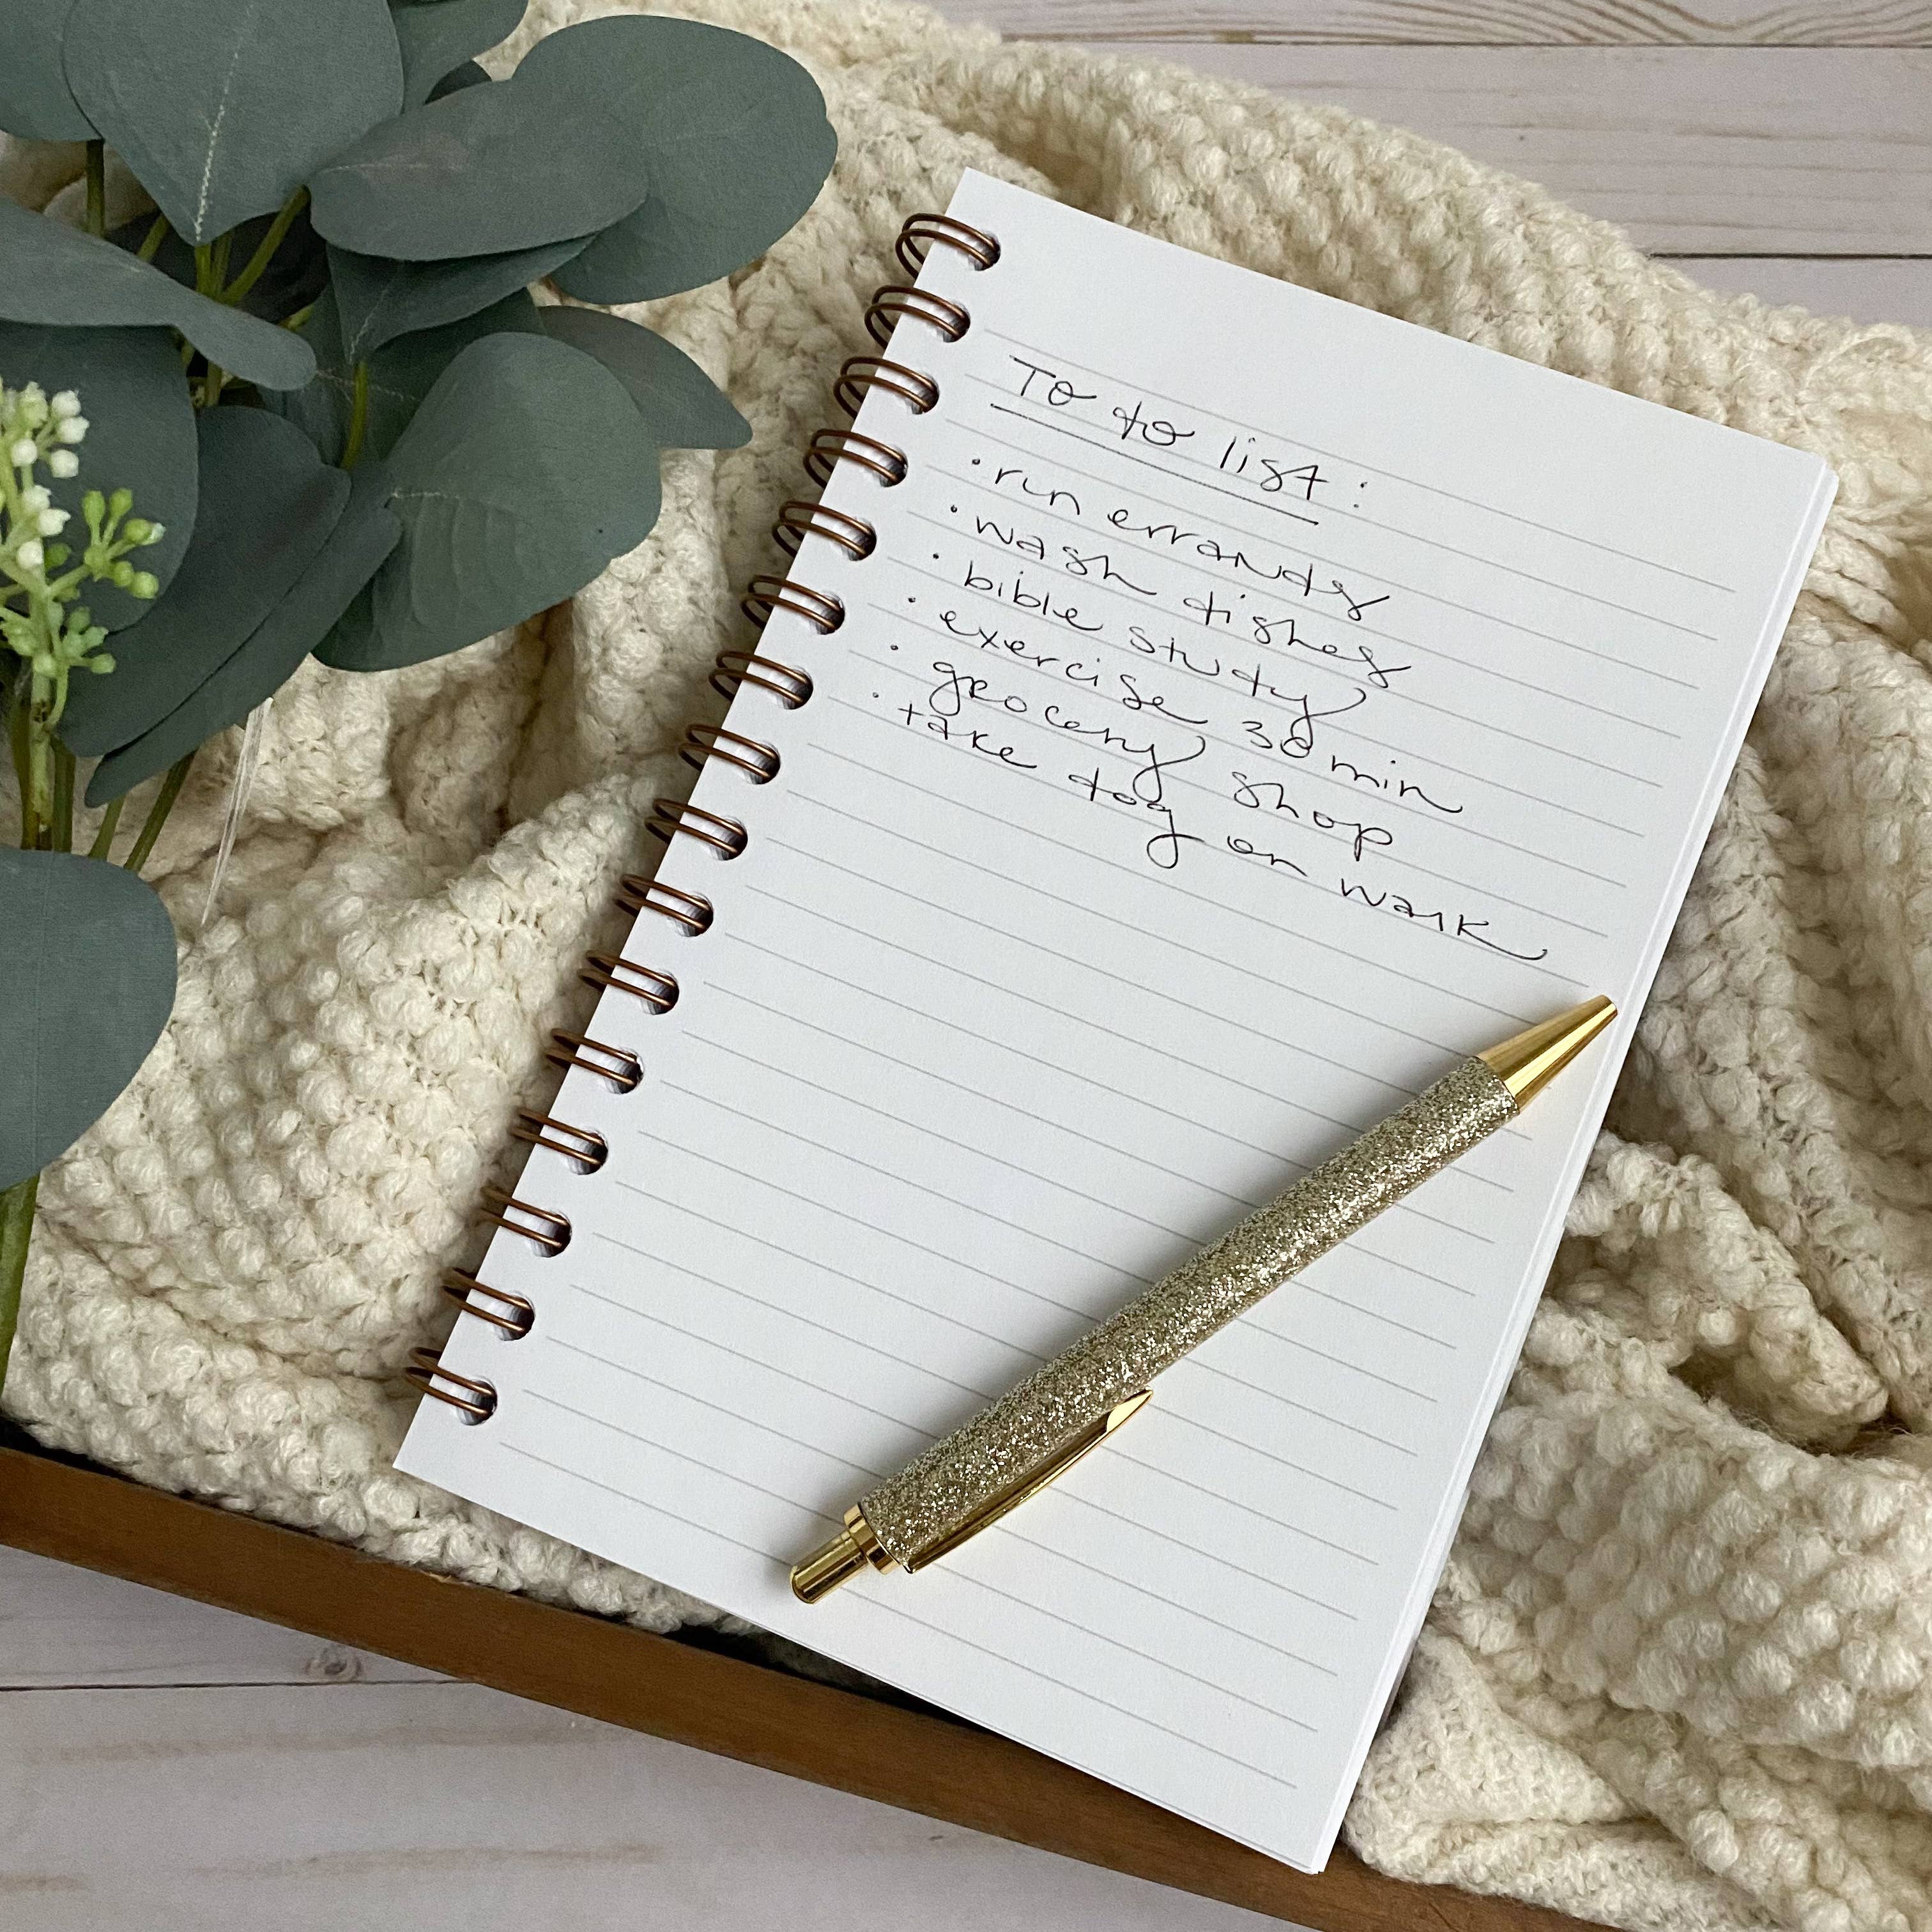 To do list:
· run errands
· wash dishes
· bible study
· exercise 30 min
· grocery shop
· take dog on walk